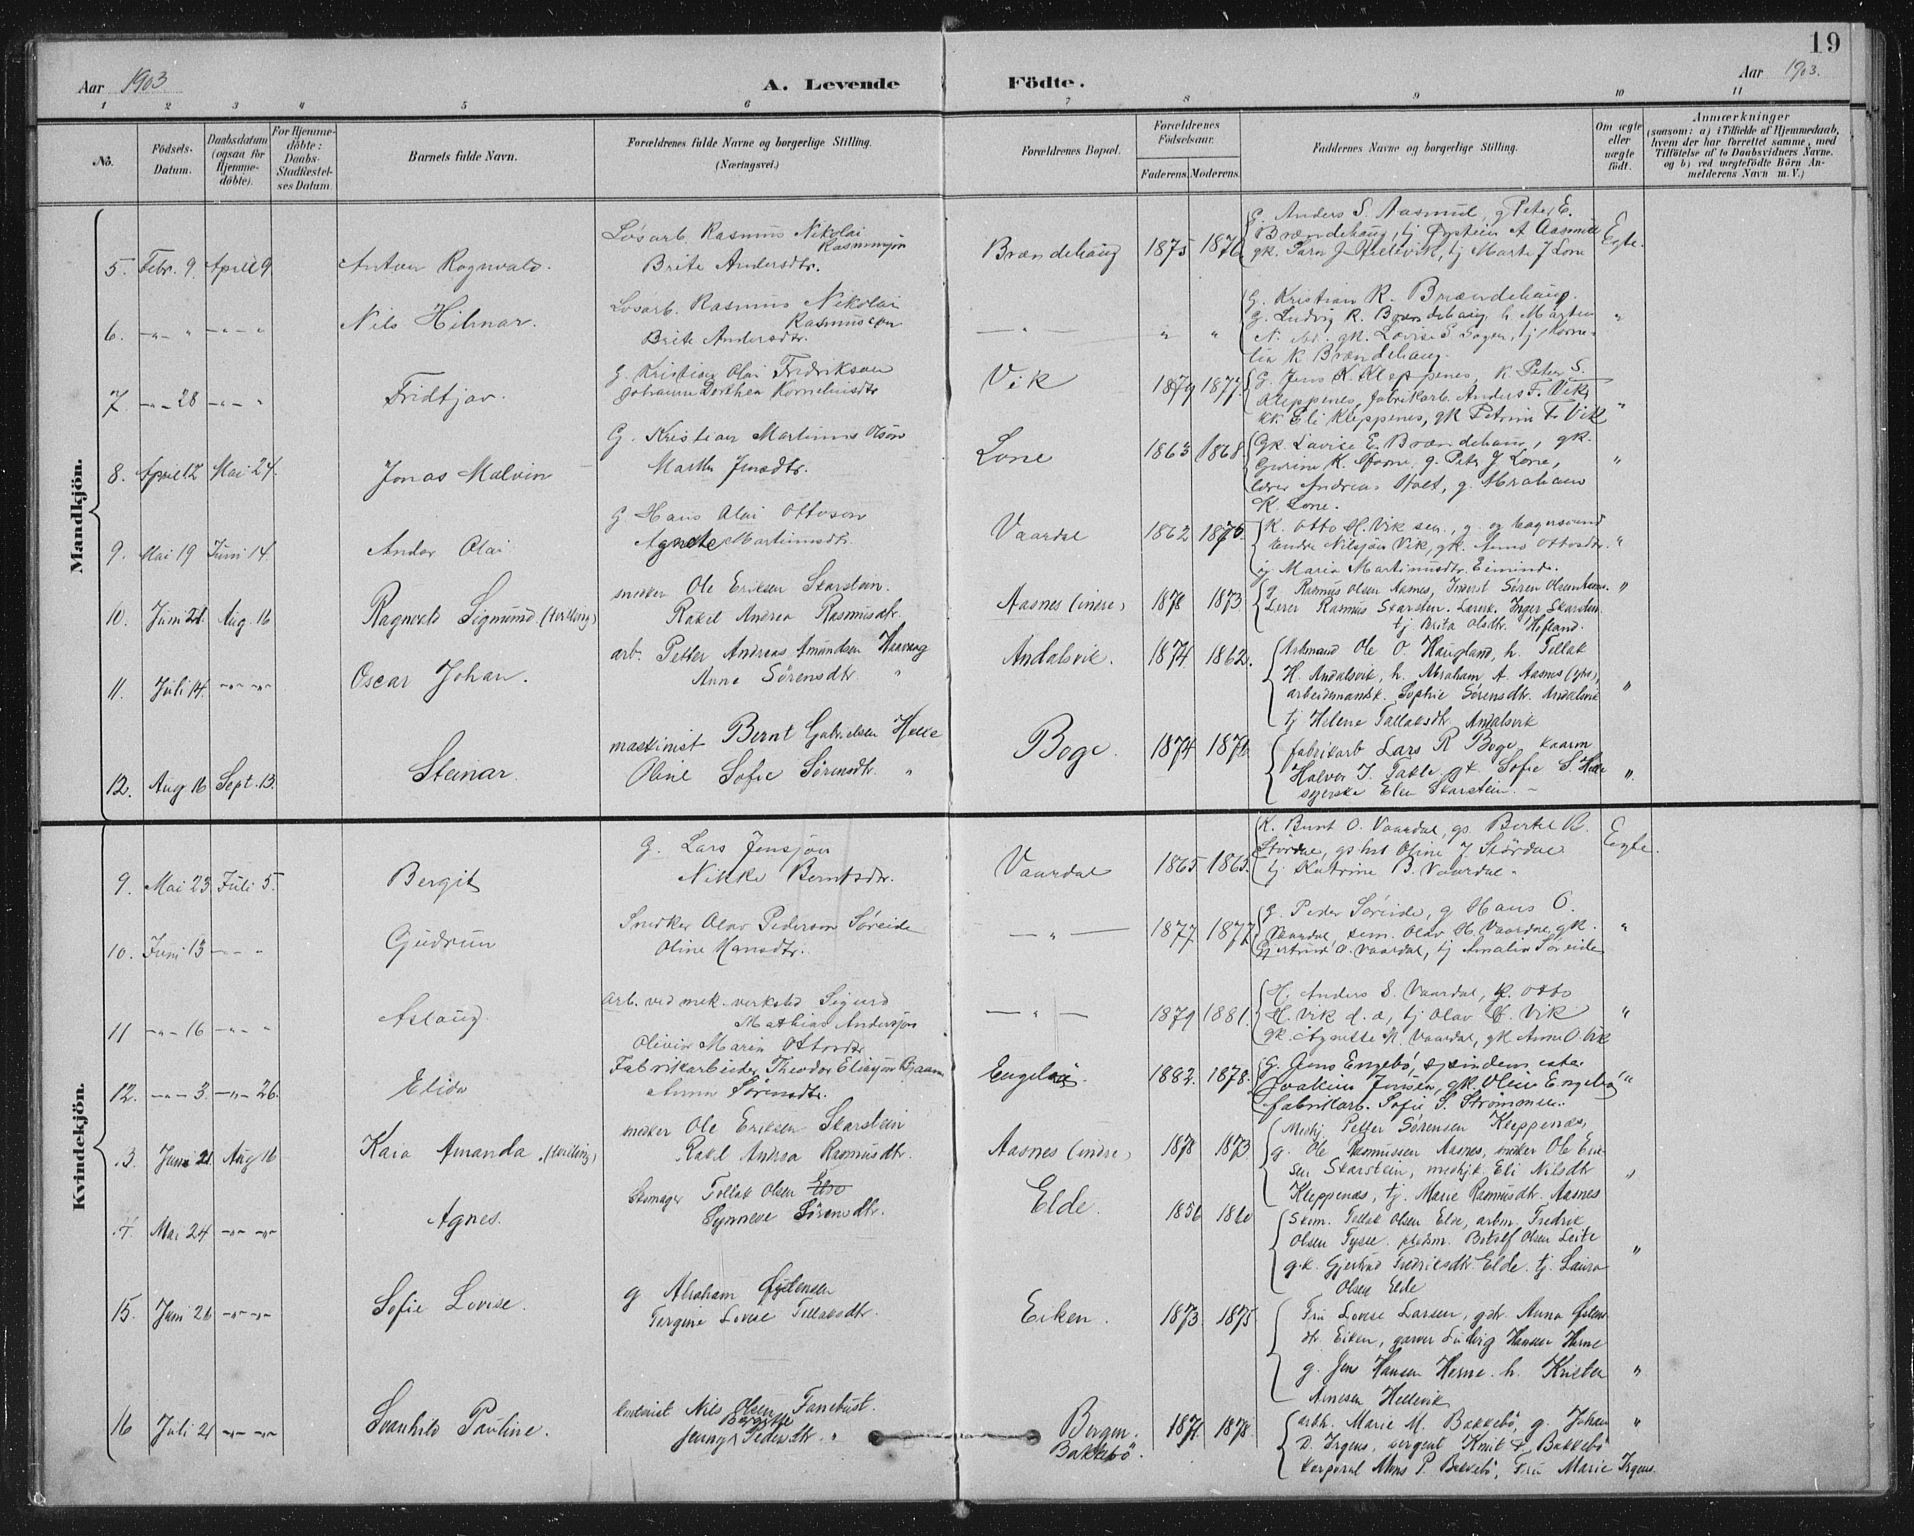 19
Aar 1903
A. Levende
Födte.
Aar 1903.
1 2 3 4 5 6 7 8 9 10 11
No.
Födsels-
Datum.
Daabsdatum
(ogsaa for
Hjemme-
döbte).
For Hjemme-
döbte:
Daabs-
Stadfæstel-
ses Datum.
Barnets fulde Navn.
Forældrenes fulde Navne og borgerlige Stilling.
(Næringsvei.)
Forældrenes Bopæl.
Forældrenes
Födselsaar.
Faderens. Moderens.
Faddernes Navne og borgerlige Stilling.
Om ægte
eller
uægte
födt.
Anmærkninger
(saasom: a) i Tilfælde af Hjemmedaab,
hvem der har forrettet samme, med
Tilföielse af to Daabsvidners Navne,
og b) ved uægtefödte Börn An-
melderens Navn m. V.)
Mandkjön.
5. Febr. 9. April 9 Anton Ragnvald.
Lösarb. Rasmus Nikolai
Rasmussøn
Brite Andersdtr.
Brændehaug 1875 1876
G. Anders S. Aasmul, g Peter E.
Brændehaug, tj Øystein A Aasmul
gk. Sara J. , tj Marta J Lone
Egte.
6. -"- " -"- " Nils Hilmar.
Losarb. Rasmus Nikolai
Rasmussen
Brite Andersdtr.
— " — " "
G. Kristian R. Brændehaug.
G. Ludvig R. Brændehaug h Martin
N. gk. Lovise S. , tj Korne-
lia K. Brændehaug. "
7. -"- 28 -"- " Fridtjov.
G. Kristian Olai Fredriksen
Johanne Dorthea Korneliusdtr
Vik 1879 1877.
G. Jens K. Kleppenes, k. Peter S.
Kleppenes, fabrikarb. Anders F. Vik,
kk Eli Kleppenes, gk Petrine F. Vik "
8. April 12 Mai 24. Jonas Malvin
G. Kristian Martinus Olson
Martha Jensdtr.
Lone 1863 1868
Gk. Lavise E. Brændehaug, gk.
Gurine K. , g. Peter J Lone,
lærer Andreas , g. Abraham
K. Lone. "
9. Mai 19 Juni 14. Andor Olai
G Hans Olai Ottoson
Agnete Martinusdtr.
Vaardal 1862 1875.
K. Otto H. Vik sen., g. og
Endre Nilsjön Vik, gk. Anna Ottosdtr.
og Maria Martinusdtr. "
10. Juni 21. Aug. 16 Ragnvald Sigmund (tvilling)
snekker Ole Eriksen Skarstein.
Rakel Andrea Rasmusdtr.
Aasnes (indre) 1878 1873
g Rasmus Olsen Aasnes, Søren Olsen Aasnes.
Lærer Rasmus Skarstein. Lærersk. Inger Skarstein.
tj Brita Olsdtr. Hofland. "
11. Juli 14. -"- -"- Oscar Johan.
arb. Petter Andreas Amundsen Haaveag
Anne Sørensdtr. "
Andalsvik. 1874 1862.
Arbmand Ole O. Haugland, h. Tollak
H. Andalsvik, h. Abraham A. Aasnes (ytre),
arbeidsmandsk. Sophie Sørensdtr. Andalsvik
tj Helene Tollaksdtr Andalsvik "
12. Aug 16 Sept. 13. Steinar.
maskinist Bernt Gabrielsen Helle
Oline Sofie Sørensdtr. "
Boge. 1874 1876
fabrikarb Lars R Boge, kaarm
Halvor J. Takle, gk. Sofie S. Helle
syerske Elen Skarstein. "
Kvindekjön.
9. Mai 23. Juli 5. Bergit
G. Lars Jensjon
Nikke Berntsdtr.
Vaardal 1865 1865.
K. Bernt O. Vaardal, gs. Bertel R.
Stördal, gs hst Oline J. Stördal
tj Katrine B. Vaardal.
Egte.
10. Juni 13 -"- " Gudrun
Snedker Olav Pederson Søreide
Oline Hansdtr.
— " — 1877 1877.
G. Peder Søreide, g Hans O.
Vaardal, sem. Olav H. Vaardal, gk.
Gjertrud O. Vaardal, tj Amalia Søreide "
11 -"- 16 -"- " Aslaug.
Arb. ved mek. verksted Sigurd
Mathias Andersjon
Olivia Marin Ottosdtr
— " — 1879 1881.
H. Anders S. Vaardal, g. Otto
H. Vik d. a, tj Olav H. Vik
gk. Agnette M. Vaardal, gk Anne O Vik "
12. -"- 3. -"- 26. Elida
Fabrikarbeider Theodor Eliasjon
Anna Sørensdtr.
Engebø. 1882. 1878.
G. Jens Engebø,
Joakim Jensen, gk. Oline Engebø
fabrikarb. Sofie S. Strømmen. "
13. Juni 21 Aug 16 Kaia Amanda. (tvilling)
snekker Ole Eriksen Skarstein
Rakel Andrea Rasmusdtr.
Aasnes (indre) 1878 1873
Medhj Petter Sørensen Kleppenæs,
g. Ole Rasmussen Aasnes, snekker Ole Erik-
sen Skarstein, medhjk Eli Nilsdtr
Kleppenæs, tj. Marie Rasmusdtr. Aasnes "
14. Mai 24 -"- -"- Agnes.
Skomager Tollak Olsen Elde
Synneve Sørensdtr.
Elde. 1856 1860
Skom. Tollak Olsen Elde, arbm. Fredrik
Olsen Tysse. Botolf Olsen Leite
g.k. Gjertrud Fredriksdtr Elde. tj. Laura
Olsen Elde "
15. Juni 26 -"- -"- Sofie Lovise.
g Abraham Øystensen
Tergine Lovise Tollaksdtr.
Eiken. 1873 1875
Fru Lovise Larsen, gdr. Anna Østens-
dtr. Eiken, garver Ludvig Hansen Herne
g. Jens Hansen Herne. h. Krister
Arnesen Hellevik "
16 Juli 21 -"- -"- Svanhild Pauline.
Nils Olsen Tanebust.
Bergitte
Jenny Pedersdtr. "
Bergen.
Bakkebö. 1871 1878
arbk. Marie M. Bakkebö, g. Johan
D. Irgens, sergent Knut P. Bakkebö
korporal Mons P. Bakkebö, Fru Marie Irgens. "